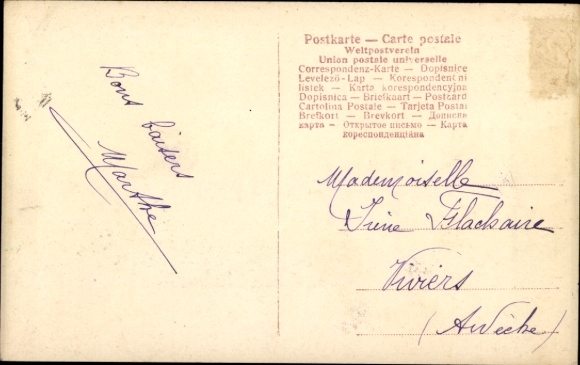 Bons baisers
Marthe
Postkarte — Carte postale
Weltpostverein
Union postale universelle
Correspondenz-Karte — Dopisnice
Levelező-Lap — Korespondenční
lístek — Karta korespondencyjna
Dopisnica — Briefkaart — Postcard
Cartolina Postale — Tarjeta Postal
Brefkort — Brevkort — Дописна
карта — Открытое письмо — Карта
кореспонденційна
Mademoiselle
Irène
Viviers
(Ardèche)